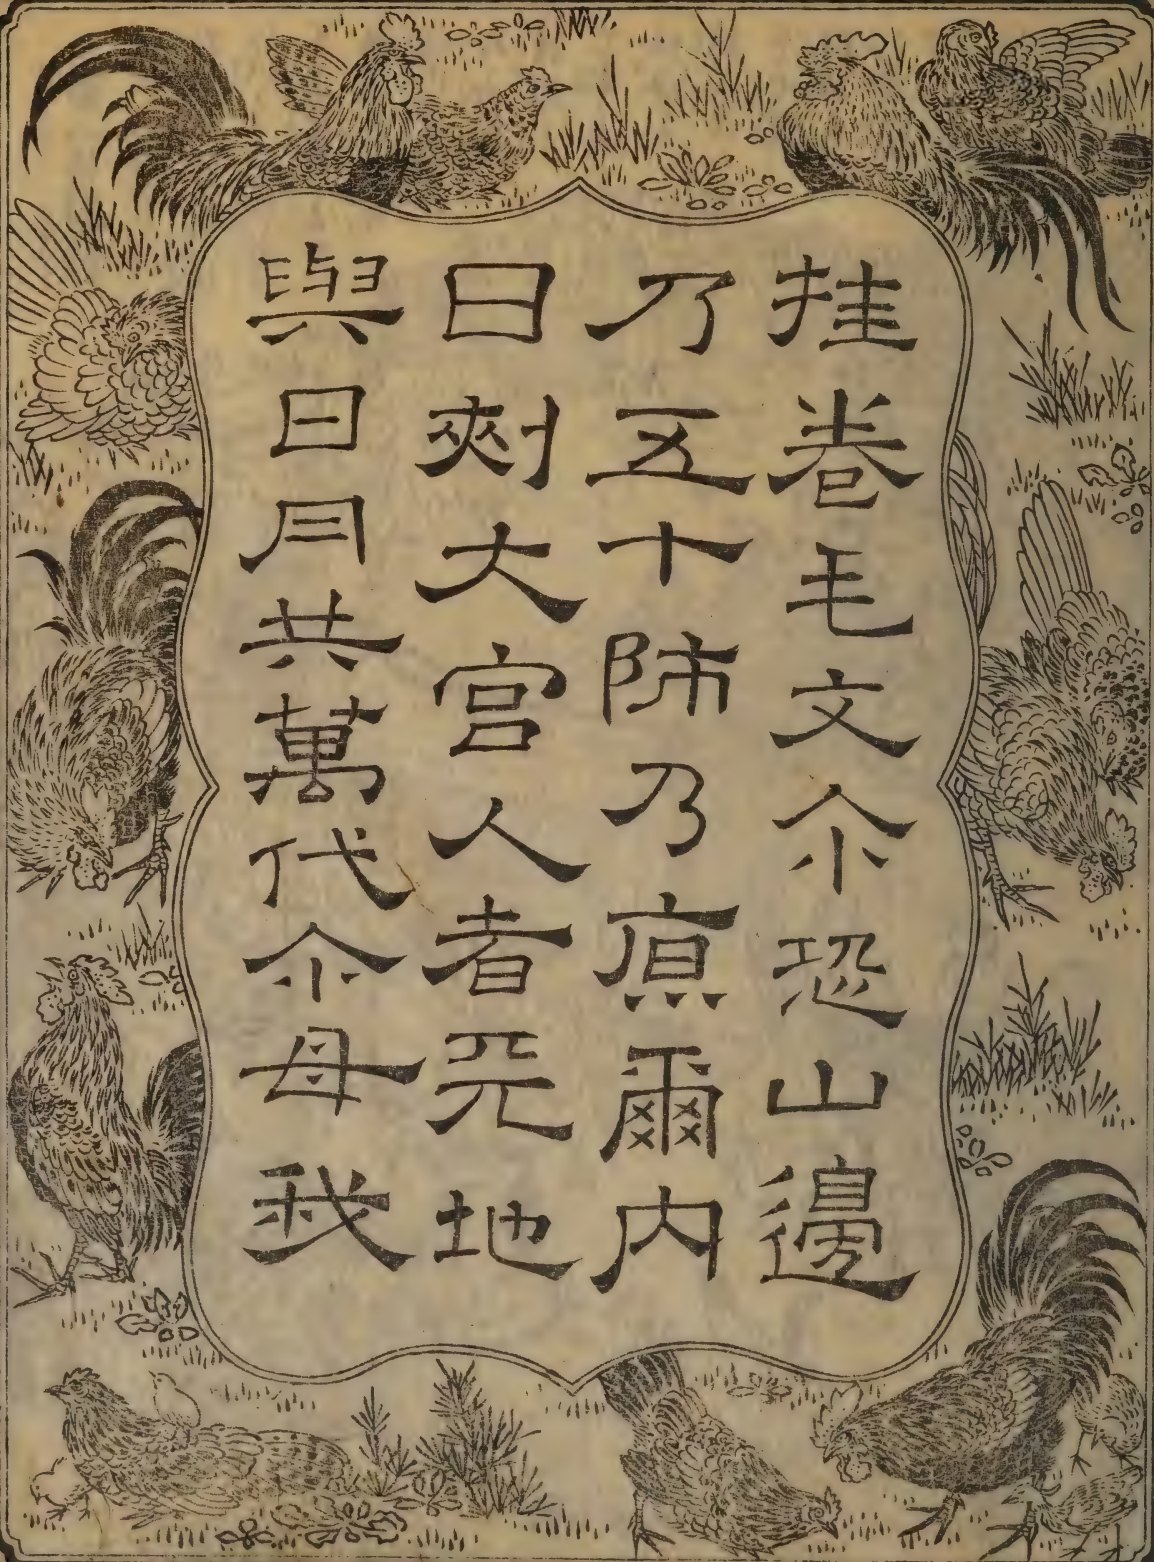 挂卷毛文尒恐山邊
乃五十師乃原爾内
日刾大宮人者天地
與日月共萬代尒母我